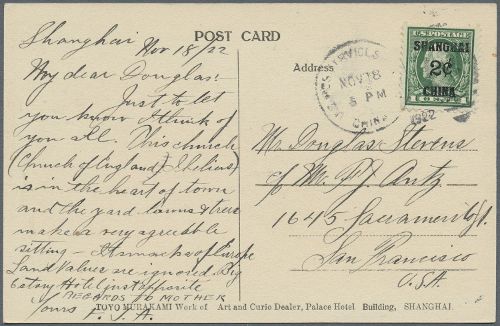 POST CARD
Shanghai
Nov 18/22
My dear Douglas:
Just to let
you know I think of
you all. This church
(Church of England I believe)
is in the heart of town
and the yard lawns & trees
make a very agreeable
sitting - It smacks of Europe
Land values are ignored. Big
Astor Hotel just opposite
REGARDS TO MOTHER
Yours F. J. A.
Address
U.S. POSTAL SERVICE
NOV 18
5 PM
CHINA
1922
U.S. POSTAGE
SHANGHAI
2¢
CHINA
1 CENT 1
Mr Douglas Stevens
c/o Mr. F J Antz
1645 Sacramento St.
San Francisco
U.S.A.
TOYO MURAKAMI Work of Art and Curio Dealer, Palace Hotel Building, SHANGHAI.